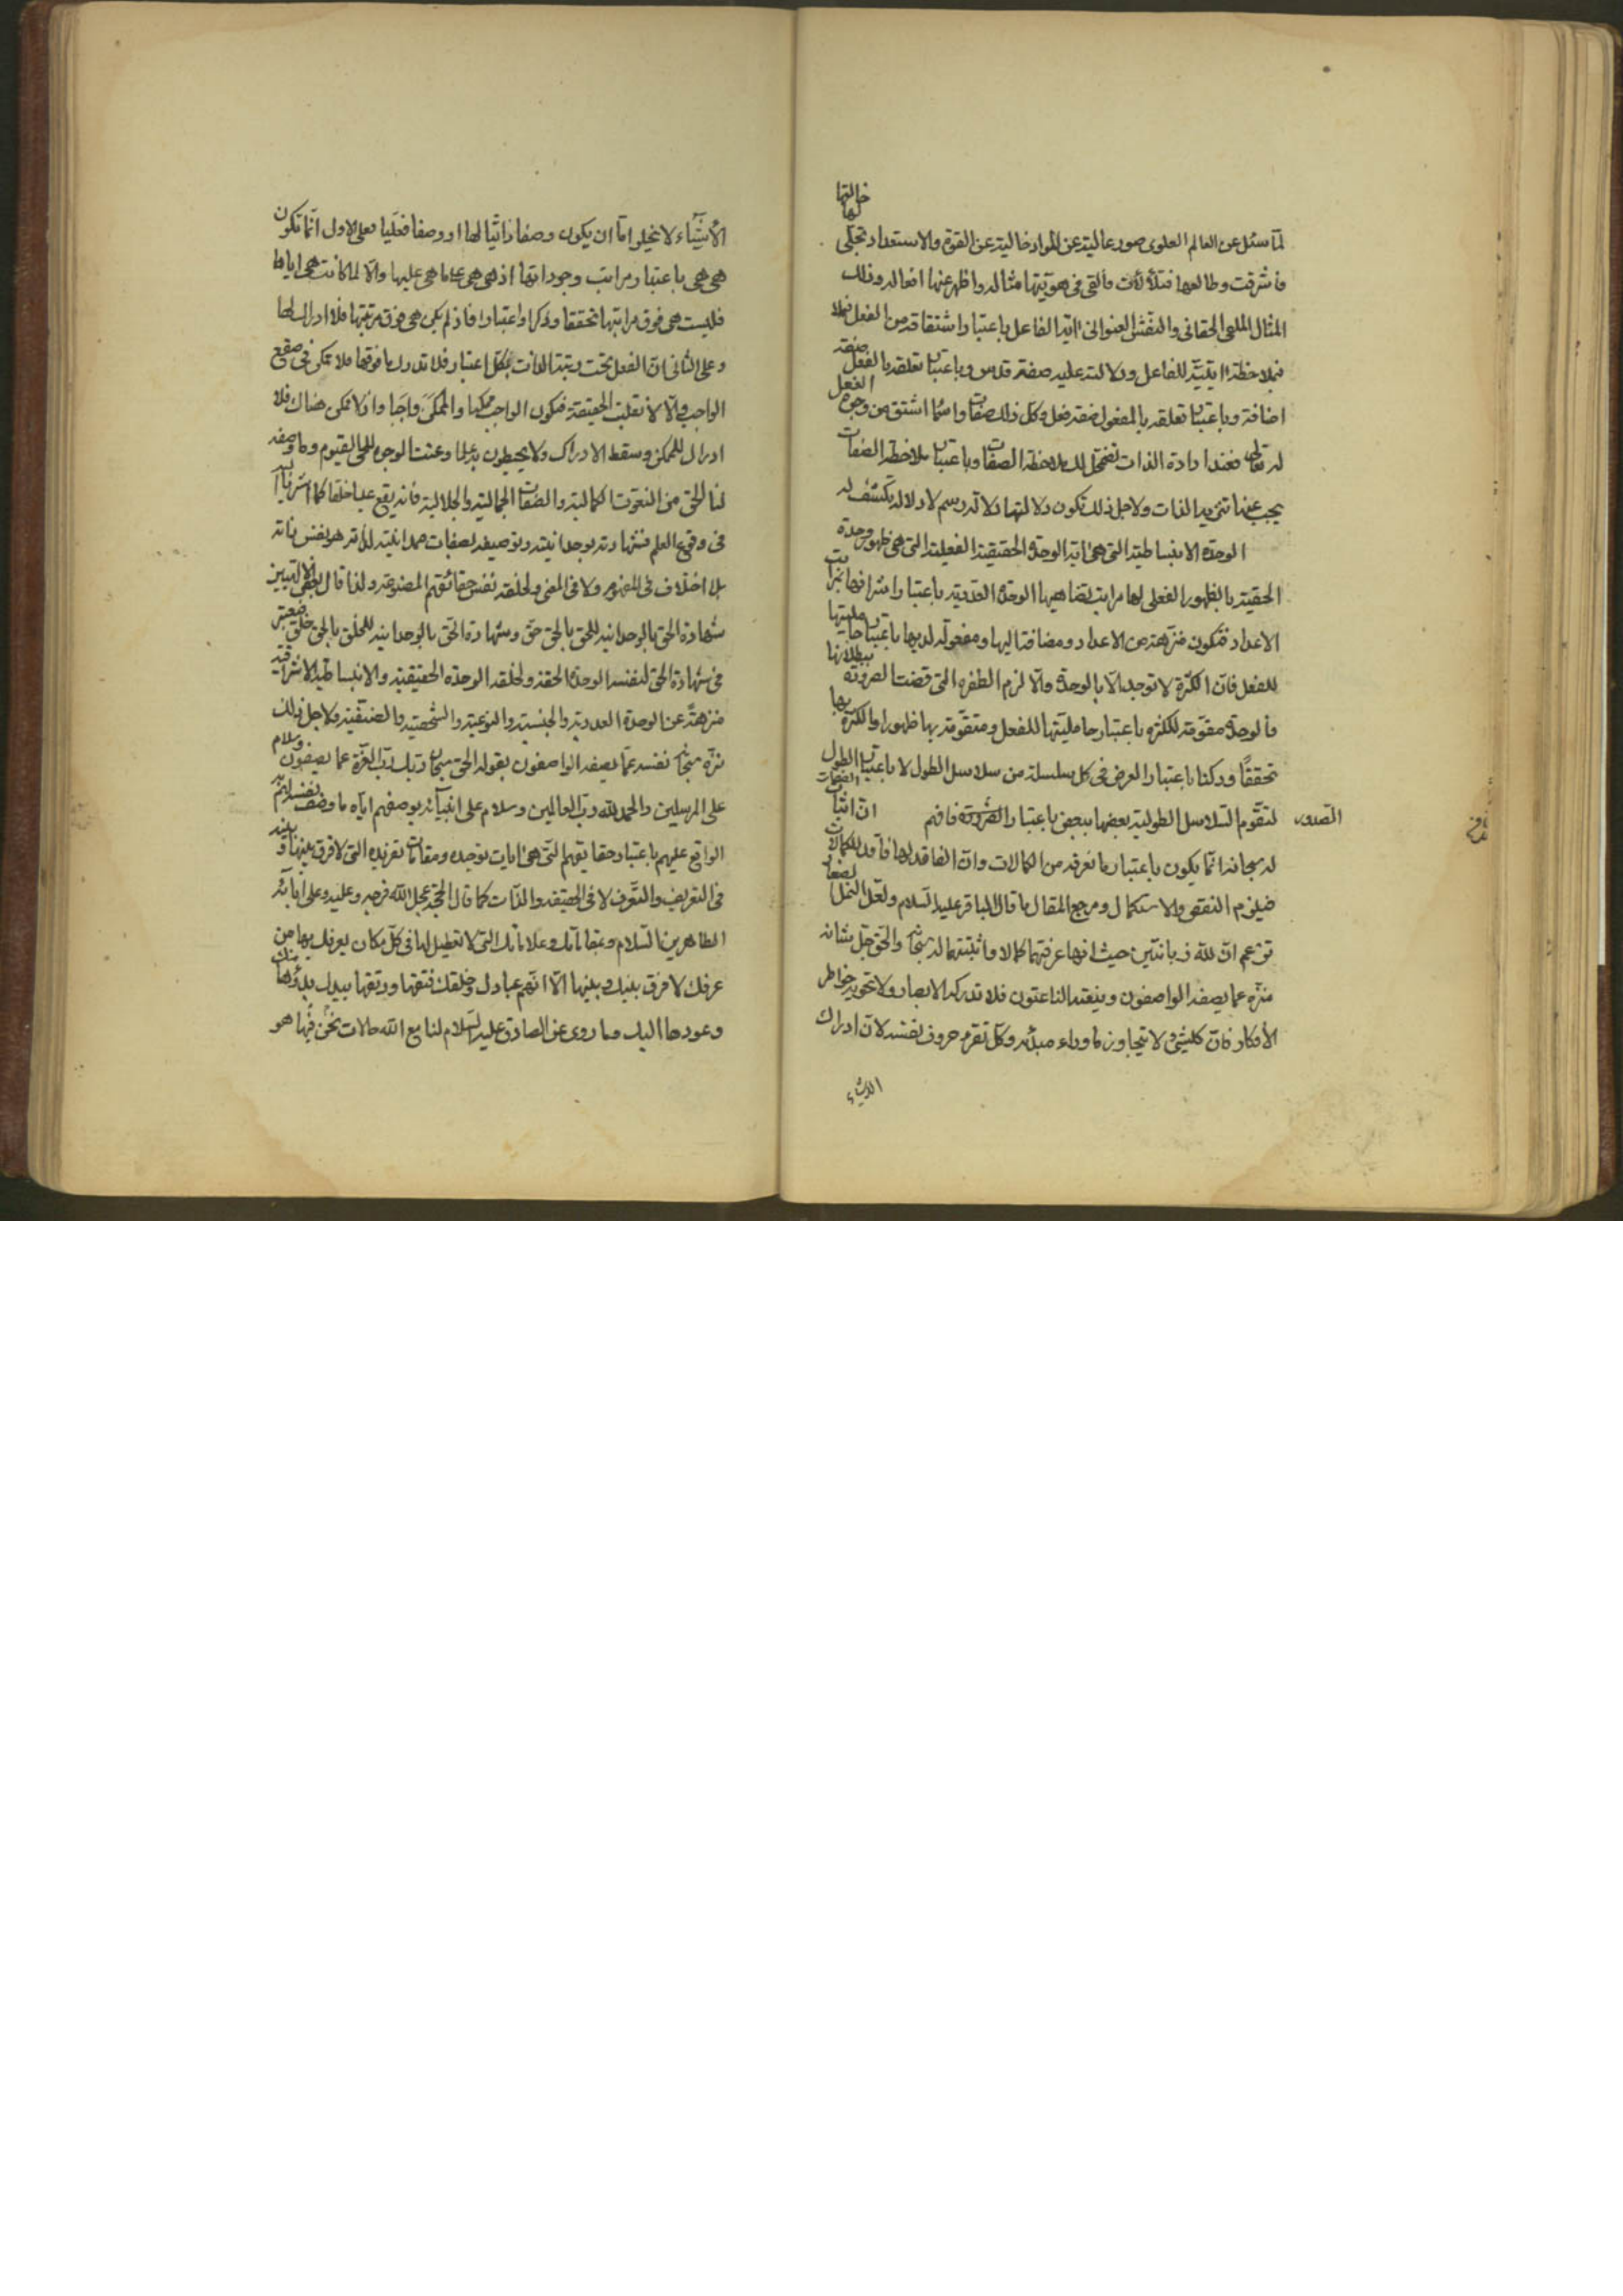 خالقها
لما سئل عن العالم العلوى صور عالية عن المواد خالية عن القوة والاستعداد تجلى لها
فاشرقت وطالعها فتلألأت فالقى فى هويتها مثاله واظهر عنها افعاله وذلك
المثال الملقى الحقانى والنقش العنوانى اية الفاعل باعتبار اشتقاقه من الفعل
فبملاحظة ايتيته للفاعل ودلالته عليه صفة قدس وباعتبار تعلقه بالفعل صفة
اضافة وباعتبار تعلقه بالمفعول صفة فعل وكل ذلك صفات واسماء اشتق من وجوه الفعل
له تعالى فعند ارادة الذات تضمحل لك ملاحظة الصفات وباعتبار ملاحظة الصفات
يحجب عنها الذات ولاجل ذلك تكون دلالتها دلالة رسم لا دلالة تكشف له
الوحدة الانبساطية التى هى اية الوحدة الحقيقية الفعلية التى هى ظهور وحدة
الحقيقة بالظهور الفعلى لها مراتب تضاهيها الوحدة العددية باعتبار اشرافها
الاعداد فتكون منزهة عن الاعداد ومضافة اليها ومفعولة لديها باعتبار حامليتها
للفعل فان الكثرة لا توجد الا بالوحدة والا لزم الطفرة التى قضت الضرورة ببطلانها
فالوحدة مقومة للكثرة باعتبار حامليتها للفعل ومتقومة بها ظهورا والكثرة بها
تحققا وركنا باعتبار العرض فى كل سلسلة من سلاسل الطول لا باعتبار الطول
الصدور لتقوم السلاسل الطولية بعضها ببعض باعتبار فافهم ان اثبات الصفات
له سبحانه انما يكون باعتبار ما نعرفه من الكمالات وان الفاقد لها فاقد للكمالات
فيلزم النقص والاستكمال ومرجع المقال ما قال الباقر عليه السلام ولعل النمل الصغار
تزعم ان لله زبانتين حيث انها عرفتهما كمالا فاثبتتهما له سبحانه والحق جل شانه
منزه عما يصفه الواصفون وينعته الناعتون فلا تدركه الابصار ولا تحويه خواطر
الأفكار فان كلشئ لا يتجاوز ما وراء مبدئه وكل يقرء حروف نفسه لان ادراك
الاشياء
الأشياء لا يخلو اما ان يكون وصفا ذاتيا لها او وصفا فعليا فعلى الاول انما تكون
هى هى باعتبار مراتب وجوداتها اذ هى هى على ما هى عليها والا لما كانت هى اياها
فليست هى فوق مراتبها تحققا وذكرا واعتبارا فاذ لم يكن هى فوق مرتبتها فلا ادراك لها
وعلى الثانى ان الفعل تحت رتبة الذات بكل اعتبار فلا تدرك ما فوقها فلا تمكن فى صقع
الواجب والا لانقلبت الحقيقة فيكون الواجب ممكنا والممكن واجبا واذ لا تمكن هناك فلا
ادراك للممكن وسقط الادراك ولا يحيطون به علما وعنت الوجوه للحى القيوم وما وصفه
لنا الحق من النعوت الكمالية والصفات الجمالية والجلالية فانه يقع على خلقه كما اشرنا اليه
فى وقوع العلم فشهادته بوحدانيته وتوصيفه لصفات صمدانيته لذاته هو نفس ذاته
بلا اختلاف فى المفهوم ولا فى المعنى ولخلقه نفس حقائقهم المصنوعة ولذا قال
شهادة الحق بالوحدانية للحق بالحق حق وشهادة الحق بالوحدانية للخلق بالحق خلق
فى شهادة الحق لنفسه الوحدة الحقة ولخلقه الوحدة الحقيقية والانبساطية الاشراقية
منزهة عن الوحدة العددية والجنسية والنوعية والشخصية والصنفية ولاجل ذلك
نزه سبحانه نفسه عما يصفه الواصفون بقوله الحق سبحان ربك رب العزة عما يصفون وسلام
على المرسلين والحمد لله رب العالمين وسلام على انبيائه بوصفهم اياه ما وصف نفسه
الواقع عليهم باعتبار حقايقهم التى هى ايات توحيده ومقامات تفريده التى لا فرق بينها وبينه
فى التعريف والتعرف لا فى الحقيقة والذات كما قال الحجة عجل الله فرجه وعليه وعلى ابائه
الطاهرين السلام ومقاماتك وعلاماتك التى لا تعطيل لها فى كل مكان يعرفك بها من
عرفك لا فرق بينك وبينها الا انهم عبادك وخلقك فتقها ورتقها بيدك بدؤها منك
وعودها اليك وما روى عن الصادق عليه السلام لنا مع الله حالات نحن فيها هو